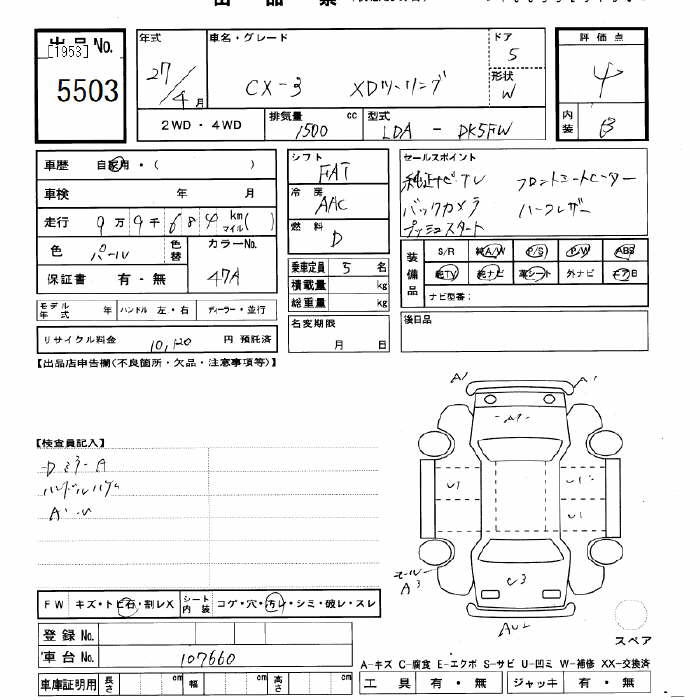 出品票
出品No.
[1953]
5503
年式 27/4月
車名・グレード CX-3 XDツーリング
ドア 5
形状 W
2WD・4WD
排気量 1500 cc
型式 LDA - DK5FW
評価点 4
内装 B
車歴 自家用・( )
車検 年 月
走行 9万9千684 km マイル( )
色 パール 色替
カラーNo. 47A
保証書 有・無
モデル年式 年 ハンドル 左・右 ディーラー・並行
リサイクル料金 10,120 円 預託済
シフト FAT
冷房 AAC
燃料 D
乗車定員 5 名
積載量 kg
総重量 kg
名変期限 月 日
セールスポイント
純正ナビ・TV フロントシートヒーター
バックカメラ ハーフレザー
プッシュスタート
装備品 S/R 純A/W P/S P/W ABS
純TV 純ナビ 革シート 外ナビ エアB
ナビ型番:
後日品
【出品店申告欄(不良箇所・欠品・注意事項等)】
【検査員記入】
DミラーA
ハンドルハゲ
A・U
FW キズ・トビ石・割レX シート内装 コゲ・穴・汚レ・シミ・破レ・スレ
登録No.
車台No. 107660
車庫証明用 長さ cm 幅 cm 高さ cm
A1
A1
A1
U1
U1
U1
A3
U3
AU2
スペア
A-キズ C-腐食 E-エクボ S-サビ U-凹ミ W-補修 XX-交換済
工具 有・無 ジャッキ 有・無